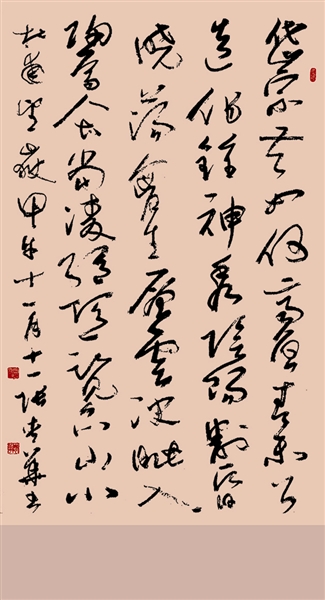 岱宗夫如何齊魯青未了
造化鍾神秀陰陽割昏
曉蕩胸生層雲決眥入
歸鳥會當凌絕頂一覽眾山小
杜甫望嶽甲午十一月十一張華書